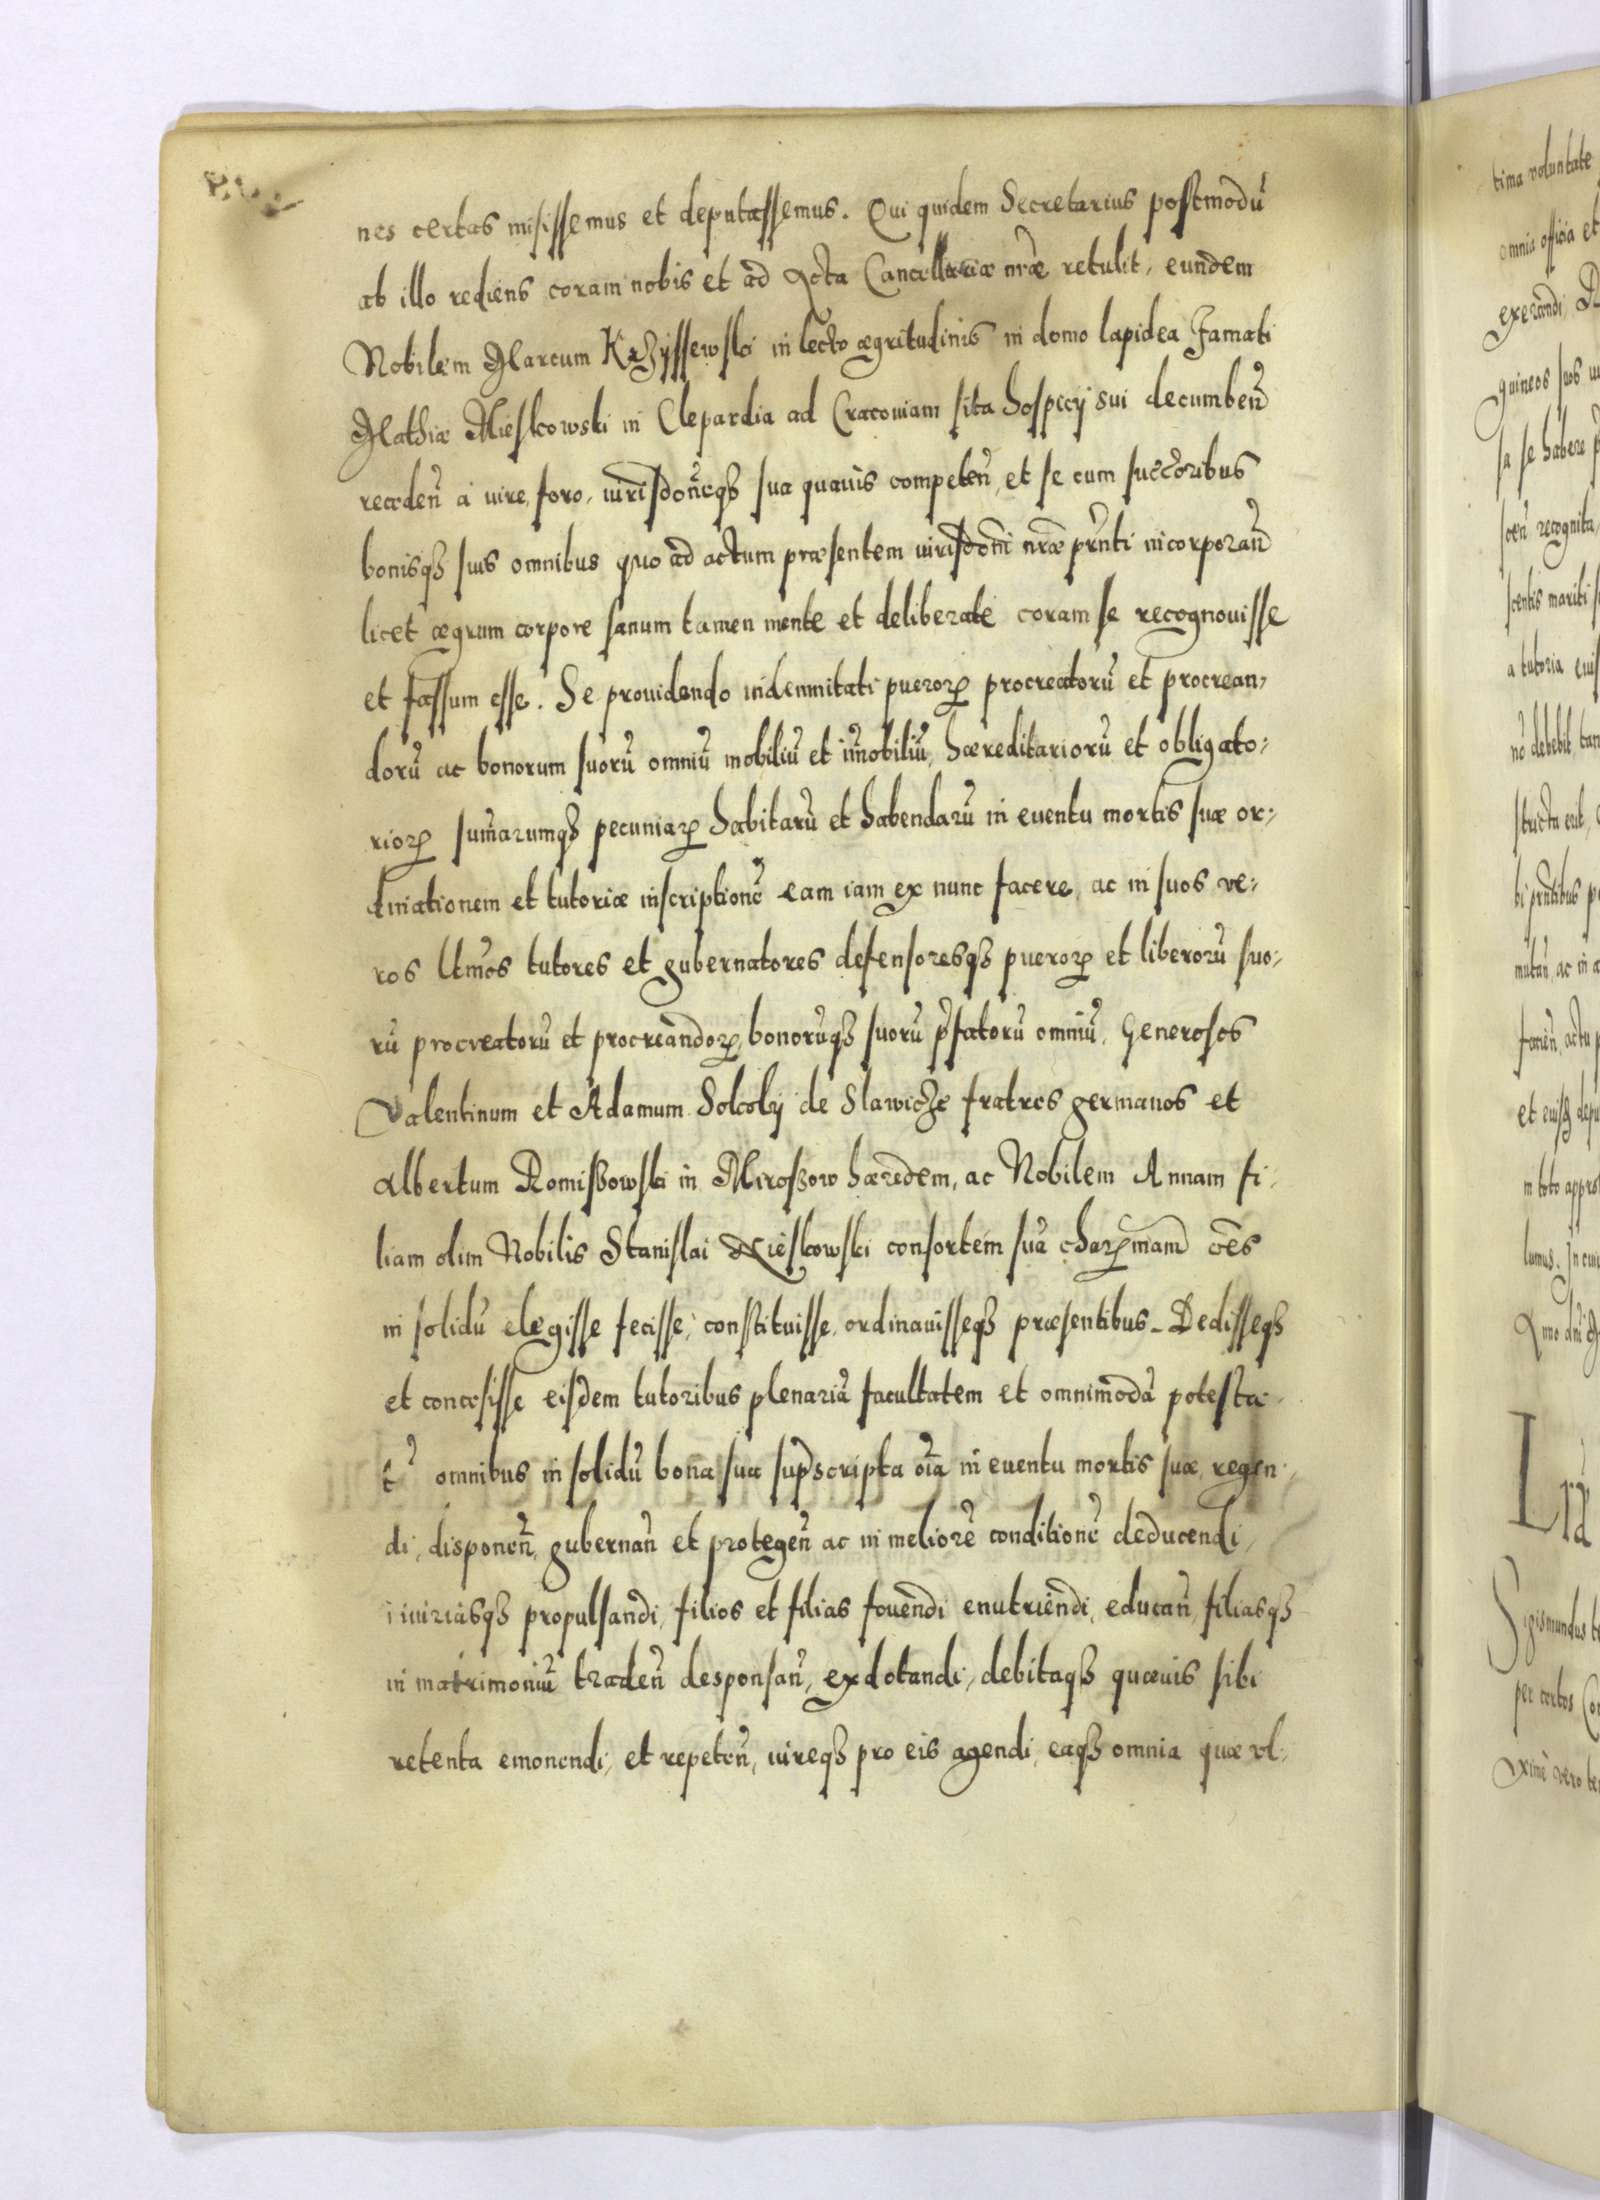 nes certas misissemus et deputassemus. Qui quidem Secretarius postmodũ
ab illo rediens coram nobis et ad Acta Cancellariæ nr̃æ retulit, eundem
Nobilem Marcum Krzyssewski in lecto ægritudinis in domo lapidea Famati
Mathiæ Mieskowski in Clepardia ad Cracouiam sita hospicÿ sui decumbeñ
recedeñ à iure, foro, iurisdoñeqȝ sua quauis competeñ, et se cum succ̃oribus
bonisqȝ suis omnibus quo ad actum præsentem iurisdoñi nr̃æ pr̃nti incorporañ
licet ægrum corpore sanum tamen mente et deliberate coram se recognouisse
et fassum esse. Se prouidendo indemnitati pueroꝝ procreatorũ et procrean,
dorũ ac bonorum suorũ omniũ mobiliũ et im̃obiliũ, hæreditariorũ et obligato,
rioꝝ sum̃arumqȝ pecuniaꝝ habitarũ et habendarũ in euentu mortis suæ or,
dinationem et tutoriæ inscriptionẽ eam iam ex nunc facere, ac in suos ve,
ros ltm̃os tutores et gubernatores defensoresqȝ pueroꝝ et liberorũ suo,
rũ procreatorũ et procreandoꝝ, bonorũqȝ suorũ p̃fatorũ omniũ, Generosos
Valentinum et Adamum Sokoly de Slawicze fratres germanos et
Albertum Romiszowski in Miroszow hæredem, ac Nobilem Annam fi,
liam olim Nobilis Stanislai Nieskowski consortem suã chaꝝmam oẽs
in solidũ elegisse fecisse, constituisse, ordinauisseqȝ præsentibus. Dedisseqȝ
et concesisse eisdem tutoribus plenariã facultatem et omnimodã potesta,
tẽ omnibus in solidũ bona sua supscripta oĩa in euentu mortis suæ, regen,
di, disponeñ, gubernañ et protegeñ ac in meliorẽ conditionẽ deducendi,
iniuriasqȝ propulsandi, filios et filias fouendi enutriendi, educañ, filiasqȝ
in matrimoniũ tradeñ desponsañ, exdotandi, debitaqȝ quæuis sibi
retenta emonendi, et repeteñ, iureqȝ pro eis agendi, eaqȝ omnia quæ vl,
tima voluntate
omnia officia et
exercendi,
guineos suos
sa se habere
recognita,
scentis mariti
a tutoria
nõ debebit, tan
ac in
actu
et
in toto
lumus. In
Sigismundus
per certos
vero